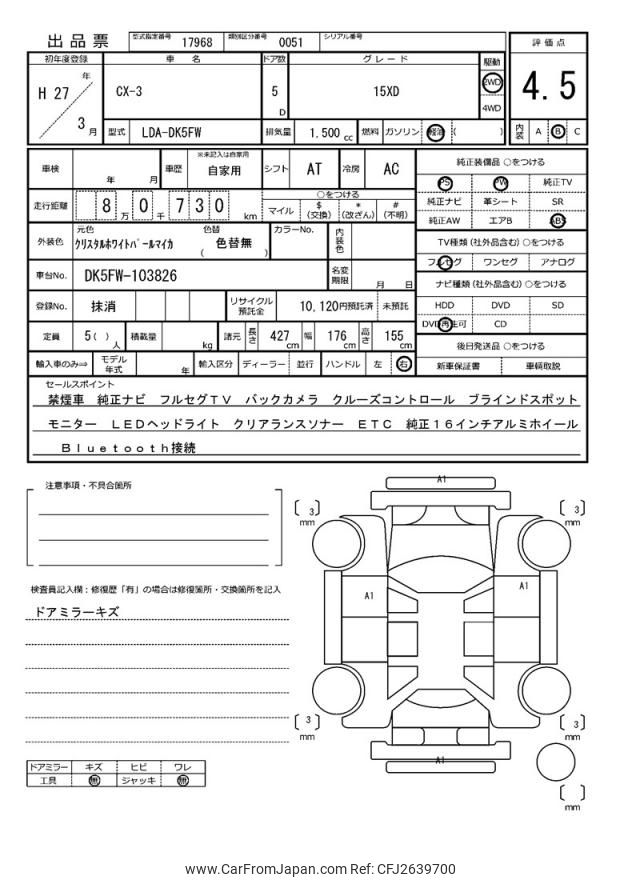 出品票 型式指定番号 17968 類別区分番号 0051 シリアル番号
評価点
初年度登録 車名 ドア数 グレード 駆動
H 27 年 3 月 CX-3 5 D 15XD 2WD 4WD
4.5
型式 LDA-DK5FW 排気量 1,500 cc 燃料 ガソリン 軽油 ( )
内装 A B C
車検 年 月 車歴 ※未記入は自家用 自家用 シフト AT 冷房 AC
純正装備品 ○をつける
PS PW 純正TV
純正ナビ 革シート SR
純正AW エアB ABS
走行距離 8 万 0 千 7 3 0 km ○をつける
マイル $ (交換) * (改ざん) # (不明)
外装色 元色 クリスタルホワイトパールマイカ 色替 ( 色替無 ) カラーNo. 内装色
TV種類 (社外品含む) ○をつける
フルセグ ワンセグ アナログ
車台No. DK5FW-103826 名変期限 月 日
ナビ種類 (社外品含む) ○をつける
HDD DVD SD
DVD再生可 CD
登録No. 抹消 リサイクル預託金 10,120円預託済 未預託
定員 5 ( ) 人 積載量 kg 諸元 長さ 427 cm 幅 176 cm 高さ 155 cm
後日発送品 ○をつける
新車保証書 車輌取説
輸入車のみ⇒ モデル年式 年 輸入区分 ディーラー 並行 ハンドル 左 右
セールスポイント
禁煙車 純正ナビ フルセグTV バックカメラ クルーズコントロール ブラインドスポット
モニター LEDヘッドライト クリアランスソナー ETC 純正16インチアルミホイール
Bluetooth接続
注意事項・不具合箇所
A1
[ 3 ] mm
[ 3 ] mm
検査員記入欄：修復歴「有」の場合は修復箇所・交換箇所を記入
ドアミラーキズ
A1 A1
[ 3 ] mm
[ 3 ] mm
A1
ドアミラー キズ ヒビ ワレ
工具 無 ジャッキ 無
[ ] mm
www.CarFromJapan.com Ref: CFJ2639700